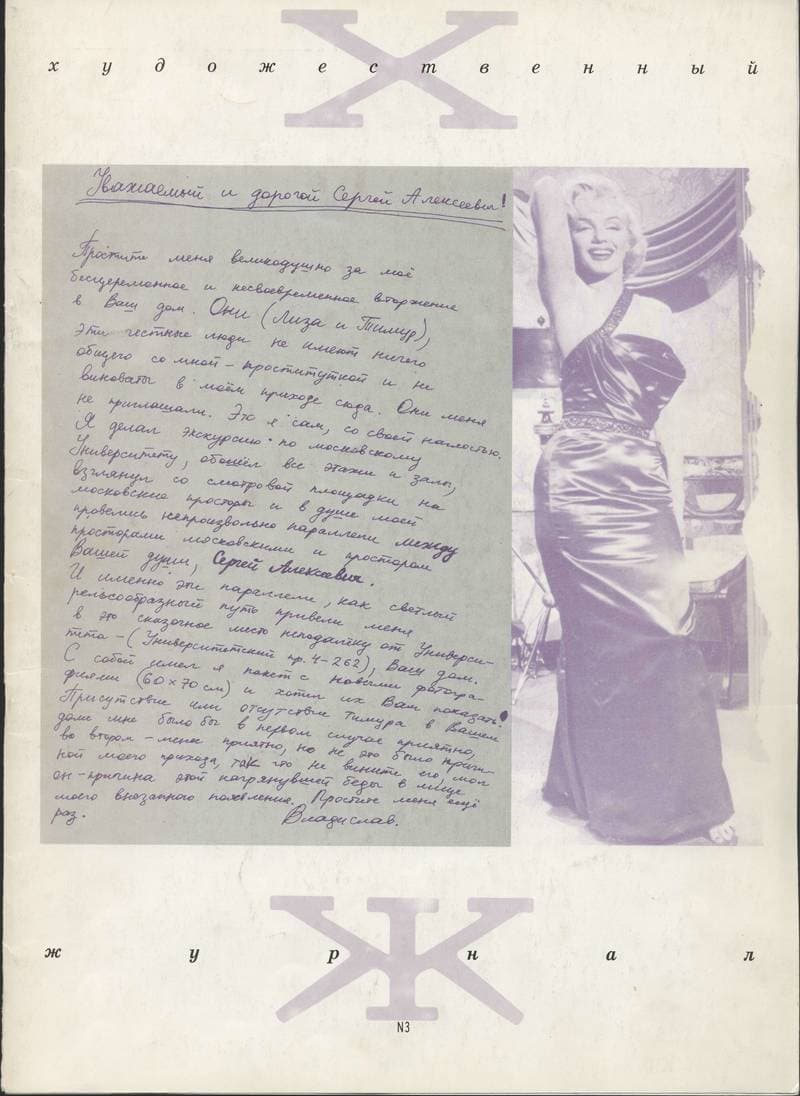 Х
художественный
Уважаемый и дорогой Сергей Алексеевич!
Простите меня великодушно за моё
бесцеремонное и несвоевременное вторжение
в Ваш дом. Они (Лиза и Тимур),
эти честные люди не имеют ничего
общего со мной - проституткой и не
виноваты в моём приходе сюда. Они меня
не приглашали. Это я сам, со своей наглостью.
Я делал экскурсию по московскому
Университету, обошёл все этажи и залы,
взглянул со смотровой площадки на
московские просторы и в душе моей
провелись непроизвольно параллели между
просторами московскими и простором
Вашей души, Сергей Алексеевич.
И именно эти параллели, как светлый
рельсообразный путь привели меня
в это сказочное место неподалёку от Универси-
тета - (Университетский пр. 4-262), Ваш дом.
С собой имел я пакет с новыми фотогра-
фиями (60×70 см) и хотел их Вам показать.
Присутствие или отсутствие Тимура в Вашем
доме мне было бы в первом случае приятно,
во втором - менее приятно, но не это было причи-
ной моего прихода, так что не вините его, мол
он - причина этой нагрянувшей беды в лице
моего внезапного появления. Простите меня ещё
раз. Владислав.
журнал
Ж
N3